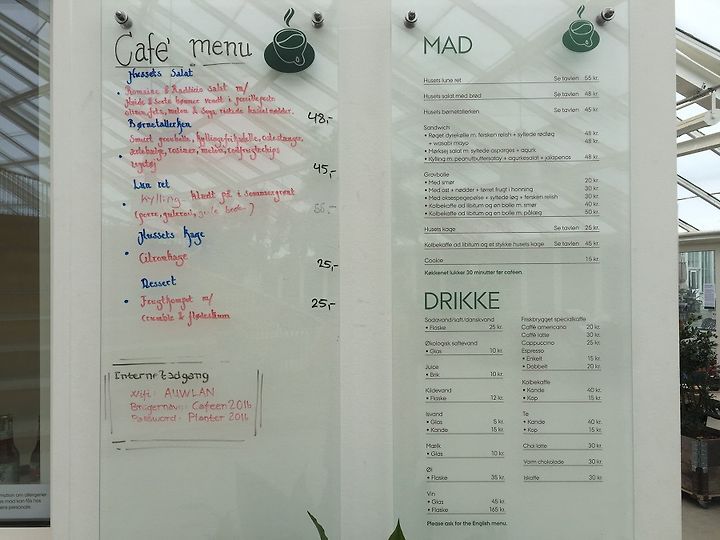 Cafe' menu
Hussets Salat
• Romaine & Radicio salat m/
Hvide & Sorte bønner vendt i persillepesto
oliven, feta, melon & Soya ristede hasselnødder.
48,-
Børnetallerken
Smurt grovbolle, kyllingefrikadelle, ostestænger,
• rosiner, melon, rodfrugtchips
45,-
Lun ret
• Kylling blødt på i sommergrønt
(porre, gulerod,
Hussets Kage
• Citronkage
25,-
Dessert
• Frugtkompot m/
Crumble & flødeskum
25,-
Internetadgang
Wifi: AUWLAN
Brugernavn: Cafeen2016
Password: Planter2016
MAD
Husets lune ret Se tavlen 55 kr.
Husets salat med brød Se tavlen 48 kr.
Husets børnetallerken Se tavlen 45 kr.
Sandwich
• Røget dyrekølle m. fersken relish + syltede rødløg 48 kr.
+ wasabi mayo 48 kr.
• Mørksej salat m. syltede asparges + agurk
• Kylling m. peanutbuttersatay + agurkesalat + jalapenos 48 kr.
Grovbolle
• Med smør 20 kr.
• Med ost + nødder + tørret frugt i honning 30 kr.
• Med oksespegepølse + syltede løg + fersken relish 30 kr.
• Kolbekaffe ad libitum og en bolle m. smør 40 kr.
• Kolbekaffe ad libitum og en bolle m. pålæg 50 kr.
Husets kage Se tavlen 25 kr.
Kolbekaffe ad libitum og et stykke husets kage Se tavlen 45 kr.
Cookie 15 kr.
Køkkenet lukker 30 minutter før caféen.
DRIKKE
Sodavand/saft/danskvand
• Flaske 25 kr.
Økologisk saftevand
• Glas 10 kr.
Juice
• Brik 10 kr.
Kildevand
• Flaske 12 kr.
Isvand
• Glas 5 kr.
• Kande 15 kr.
Mælk
• Glas 10 kr.
Øl
• Flaske 35 kr.
Vin
• Glas 45 kr.
• Flaske 165 kr.
Please ask for the English menu.
Friskbrygget specialkaffe
Caffè americano 20 kr.
Caffè latte 30 kr.
Cappuccino 25 kr.
Espresso
• Enkelt 15 kr.
• Dobbelt 20 kr.
Kolbekaffe
• Kande 40 kr.
• Kop 15 kr.
Te
• Kande 40 kr.
• Kop 15 kr.
Chai latte 30 kr.
Varm chokolade 30 kr.
Iskaffe 30 kr.